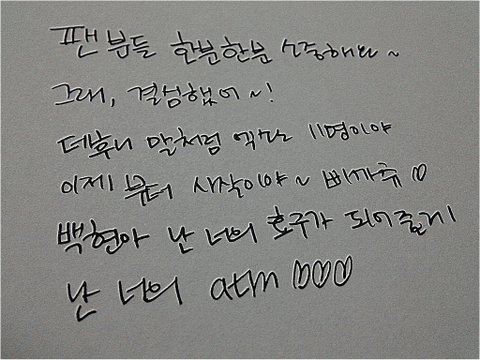 팬분들 한분한분 소중해요~
그래, 결심했어~!
데후니 말처럼 엑소는 11명이야
이제부터 시작이야~ 삐까츄♡
백현아 난 너의 호구가 되어줄게
난 너의 atm ♡♡♡